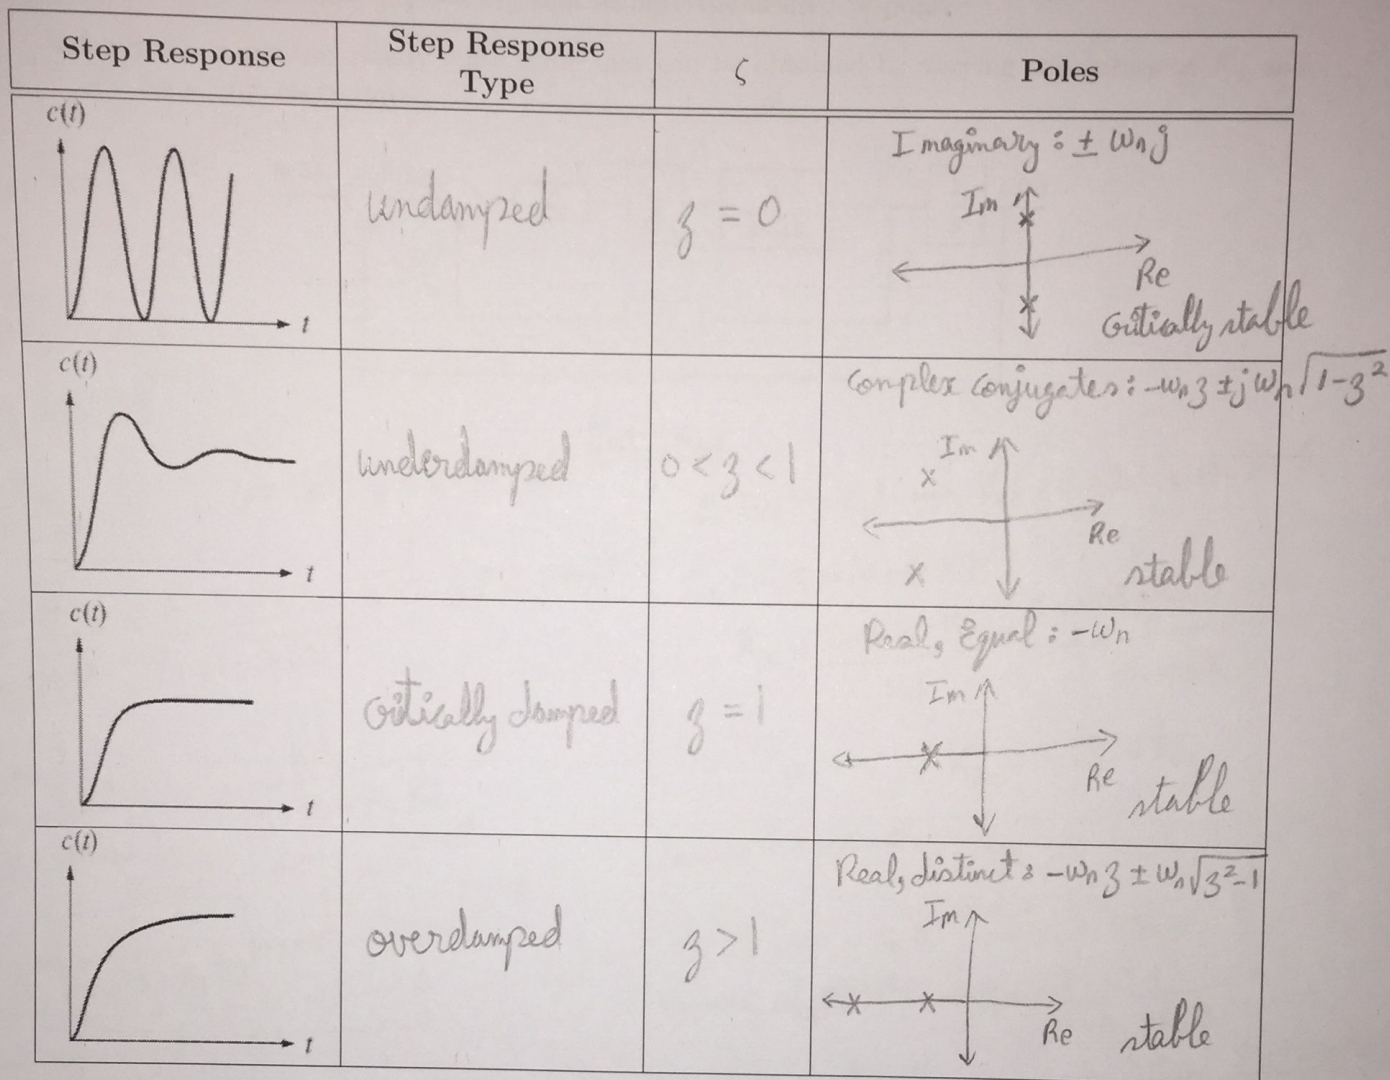 Step Response
Step Response
Type
ζ
Poles
c(t)
t
undamped
ζ = 0
Imaginary : ± ωn j
Im
Re
Critically stable
c(t)
t
underdamped
0 < ζ < 1
Complex Conjugates : -ωn ζ ± j ωn √1-ζ²
Im
Re
stable
c(t)
t
critically damped
ζ = 1
Real, Equal : -ωn
Im
Re
stable
c(t)
t
overdamped
ζ > 1
Real, distinct : -ωn ζ ± ωn √ζ²-1
Im
Re
stable